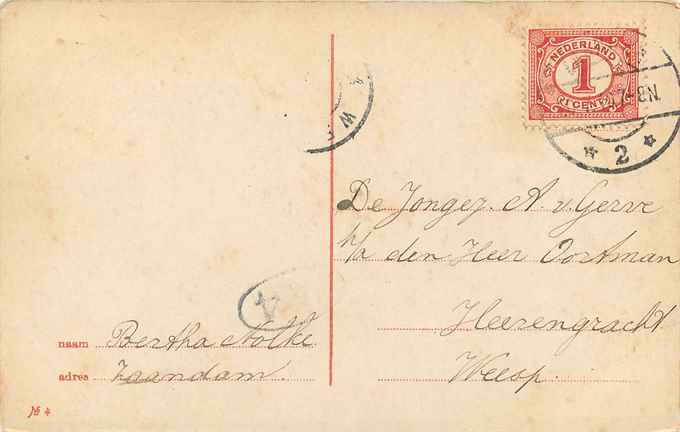 NEDERLAND
1
(1 CENT)
N.8-9
2
W E
De Jonger. A. v. Gerve
p/a den Heer Oortman
Heerengracht
Weesp.
4
naam Bertha Nolke.
adres Zaandam.
№ 4